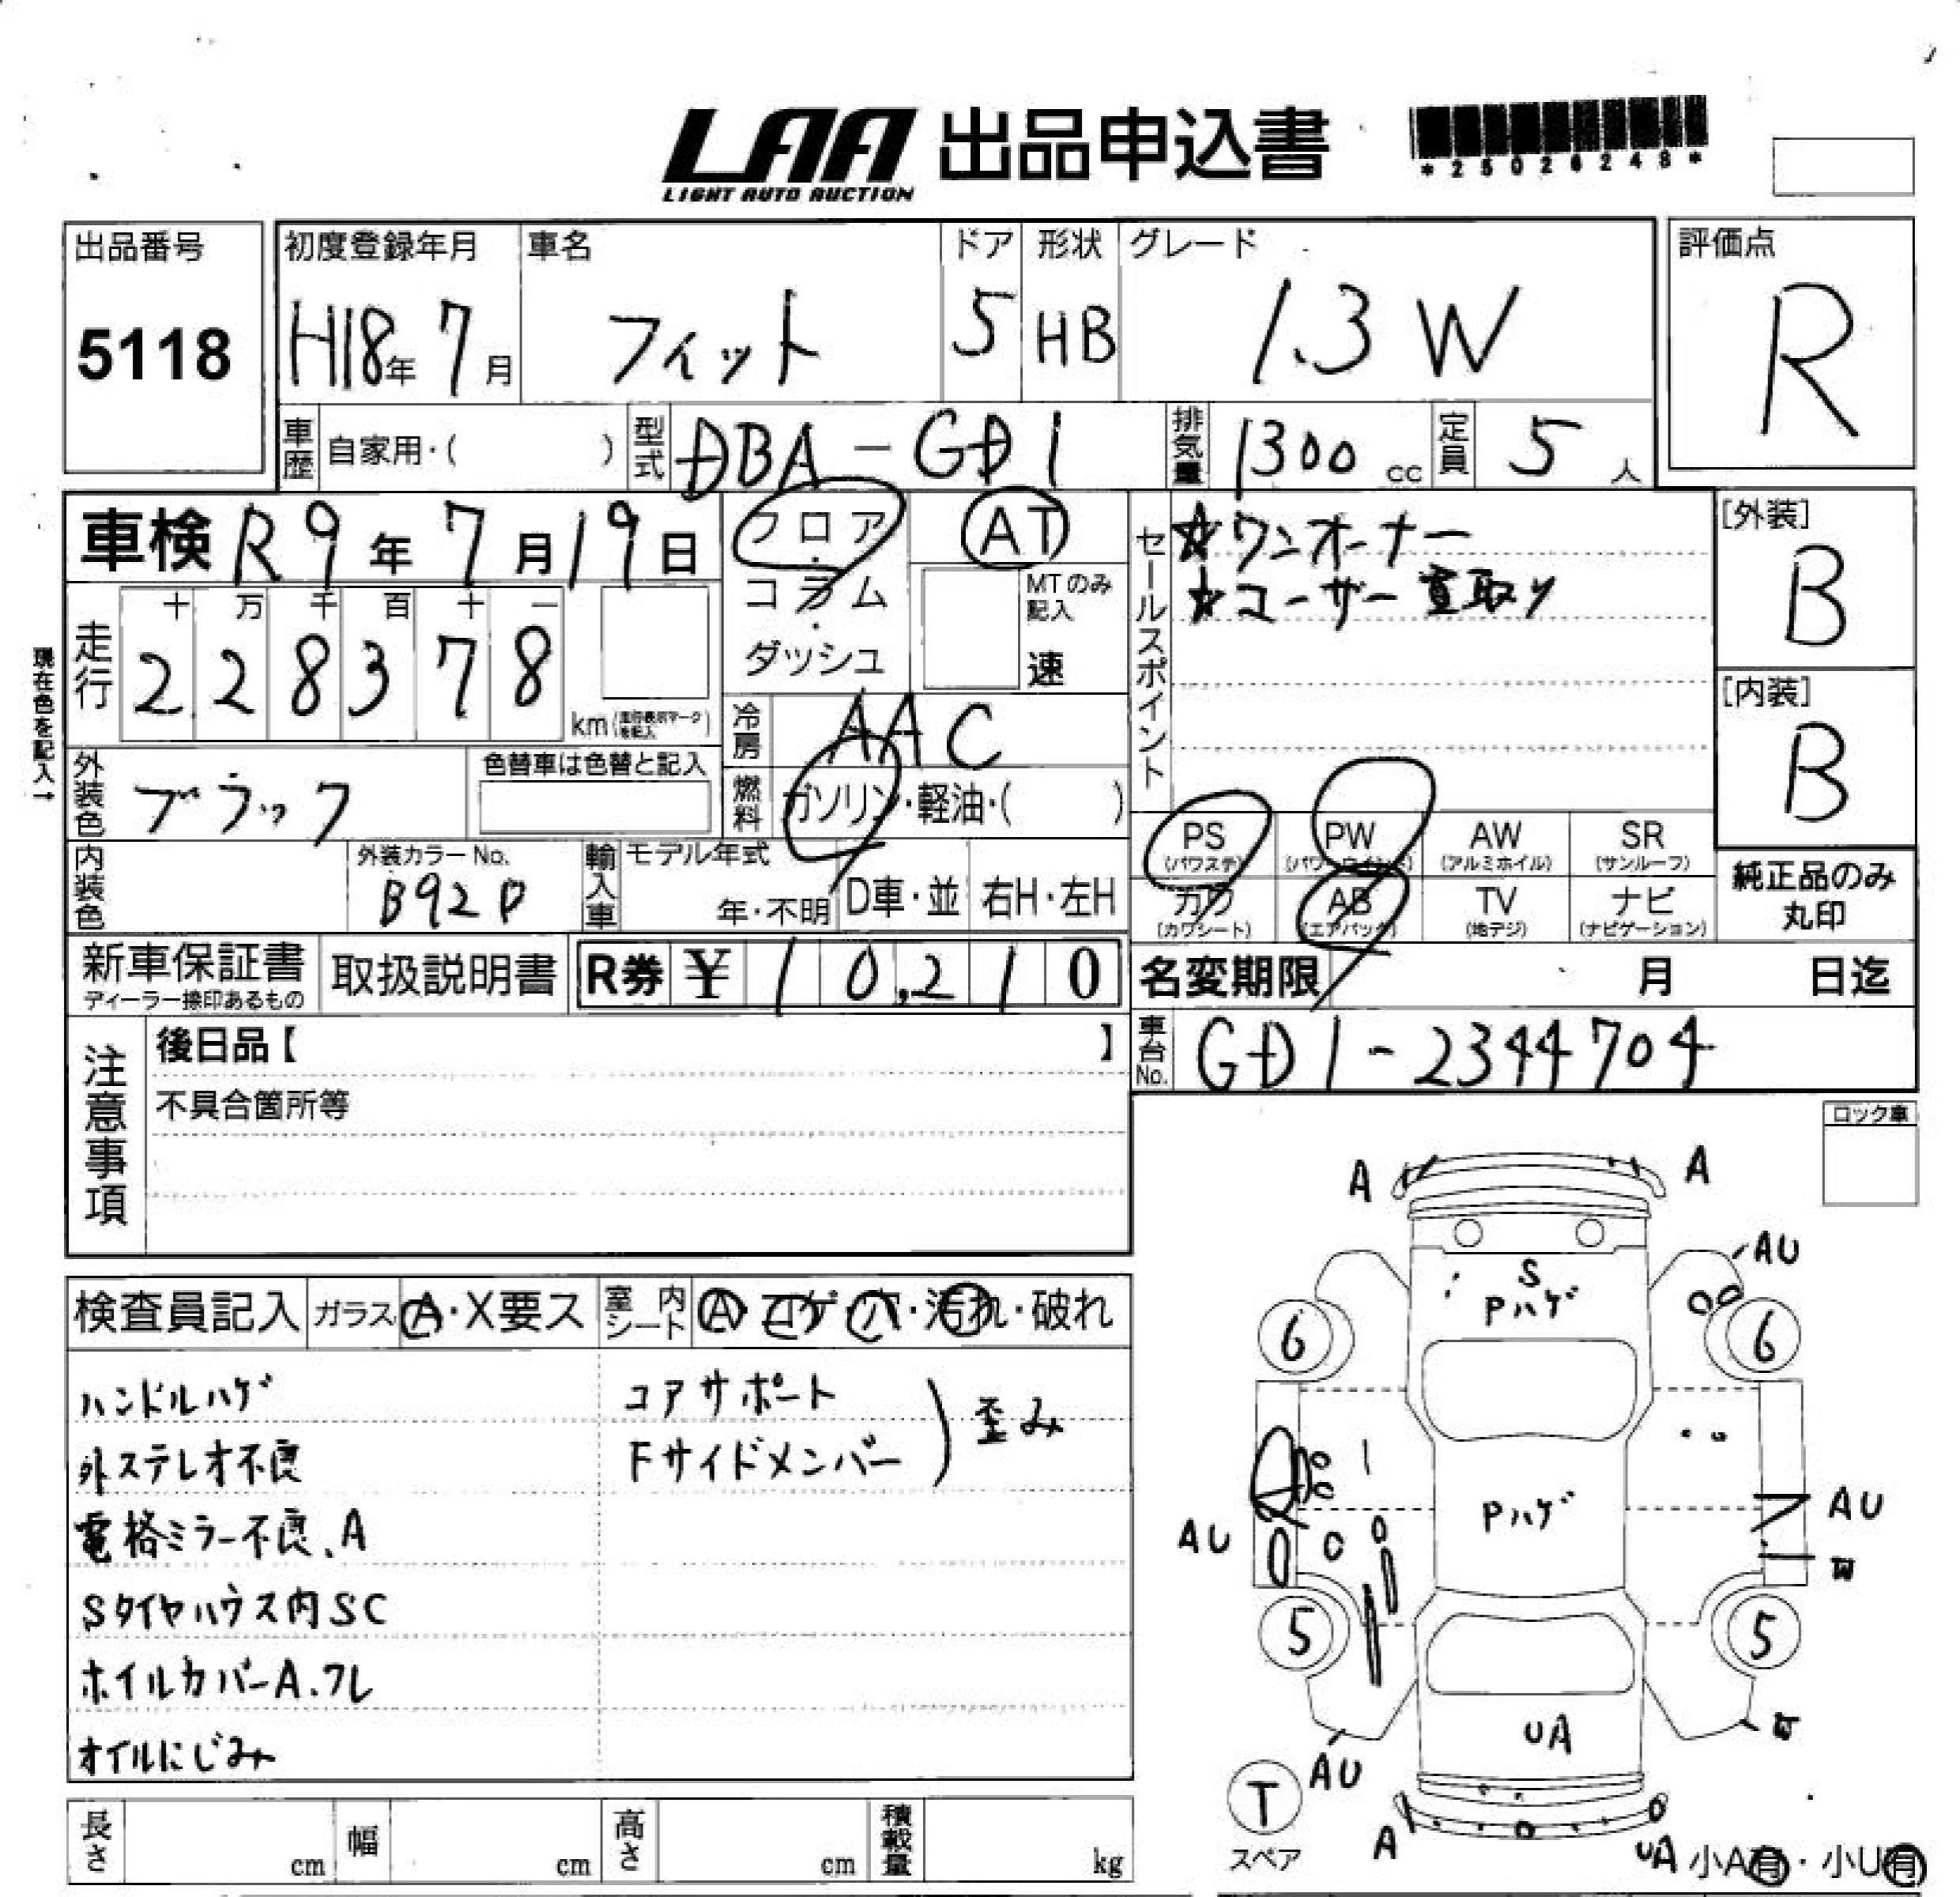 LAA 出品申込書
LIGHT AUTO AUCTION
*25026248*
出品番号
5118
初度登録年月
H18年 7月
車名
フィット
ドア
5
形状
HB
グレード
1.3 W
評価点
R
車歴 自家用・( )
型式 DBA-GD1
排気量 1300 cc
定員 5 人
車検 R9年 7月19日
フロア・コラム・ダッシュ
AT
MTのみ記入
速
セールスポイント
☆ワンオーナー
☆ユーザー買取り
[外装]
B
[内装]
B
現在色を記入→
走行
十 万 千 百 十 一
2 2 8 3 7 8
km
冷房 AAC
外装色 ブラック
色替車は色替と記入
燃料 ガソリン・軽油・( )
PS (パワステ)
PW (パワーウインド)
AW (アルミホイル)
SR (サンルーフ)
カワ (カワシート)
AB (エアバック)
TV (地デジ)
ナビ (ナビゲーション)
純正品のみ
丸印
内装色
外装カラーNo.
B92P
輸入車
モデル年式
年・不明
D車・並
右H・左H
新車保証書
ディーラー捺印あるもの
取扱説明書
R券 ¥ 10,210
名変期限 月 日迄
車台No. GD1-2344704
注意事項
後日品【 】
不具合箇所等
ロック車
検査員記入
ガラス A・X要ス
室内シート A・コゲ・穴・汚れ・破れ
ハンドルハゲ
外ステレオ不良
電格ミラー不良、A
Sタイヤハウス内SC
ホイルカバーA.ワレ
オイルにじみ
コアサポート
Fサイドメンバー
歪み
A
A
AU
S
Pハゲ
6
6
Pハゲ
AU
AU
W
5
5
W
UA
AU
T
スペア
A
UA
小A有・小U有
長さ cm
幅 cm
高さ cm
積載量 kg